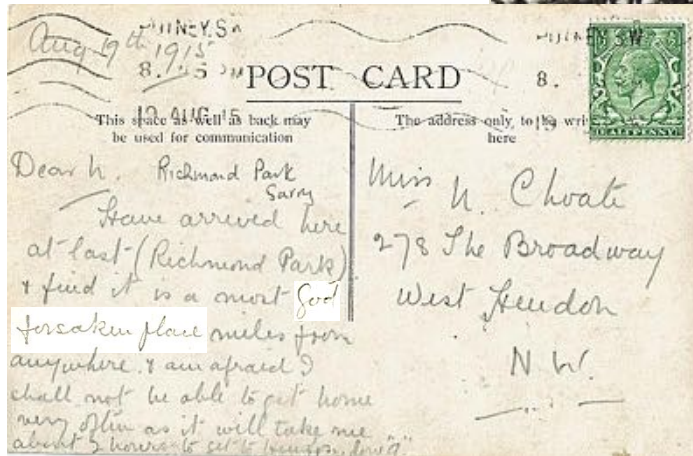 Aug 19th 1915
PUTNEY.S.W
8. 15 PM
19 AUG 15
POST CARD
8.
HALFPENNY
This space as well as back may
be used for communication
The address only to be
here
Dear N. Richmond Park
Surry
Have arrived here
at last (Richmond Park)
& find it is a most God
forsaken place miles from
anywhere & am afraid I
shall not be able to get home
very often as it will take me
about 2 hours to get to Hendon.
Miss N. Choate
278 The Broadway
West Hendon
N.W.